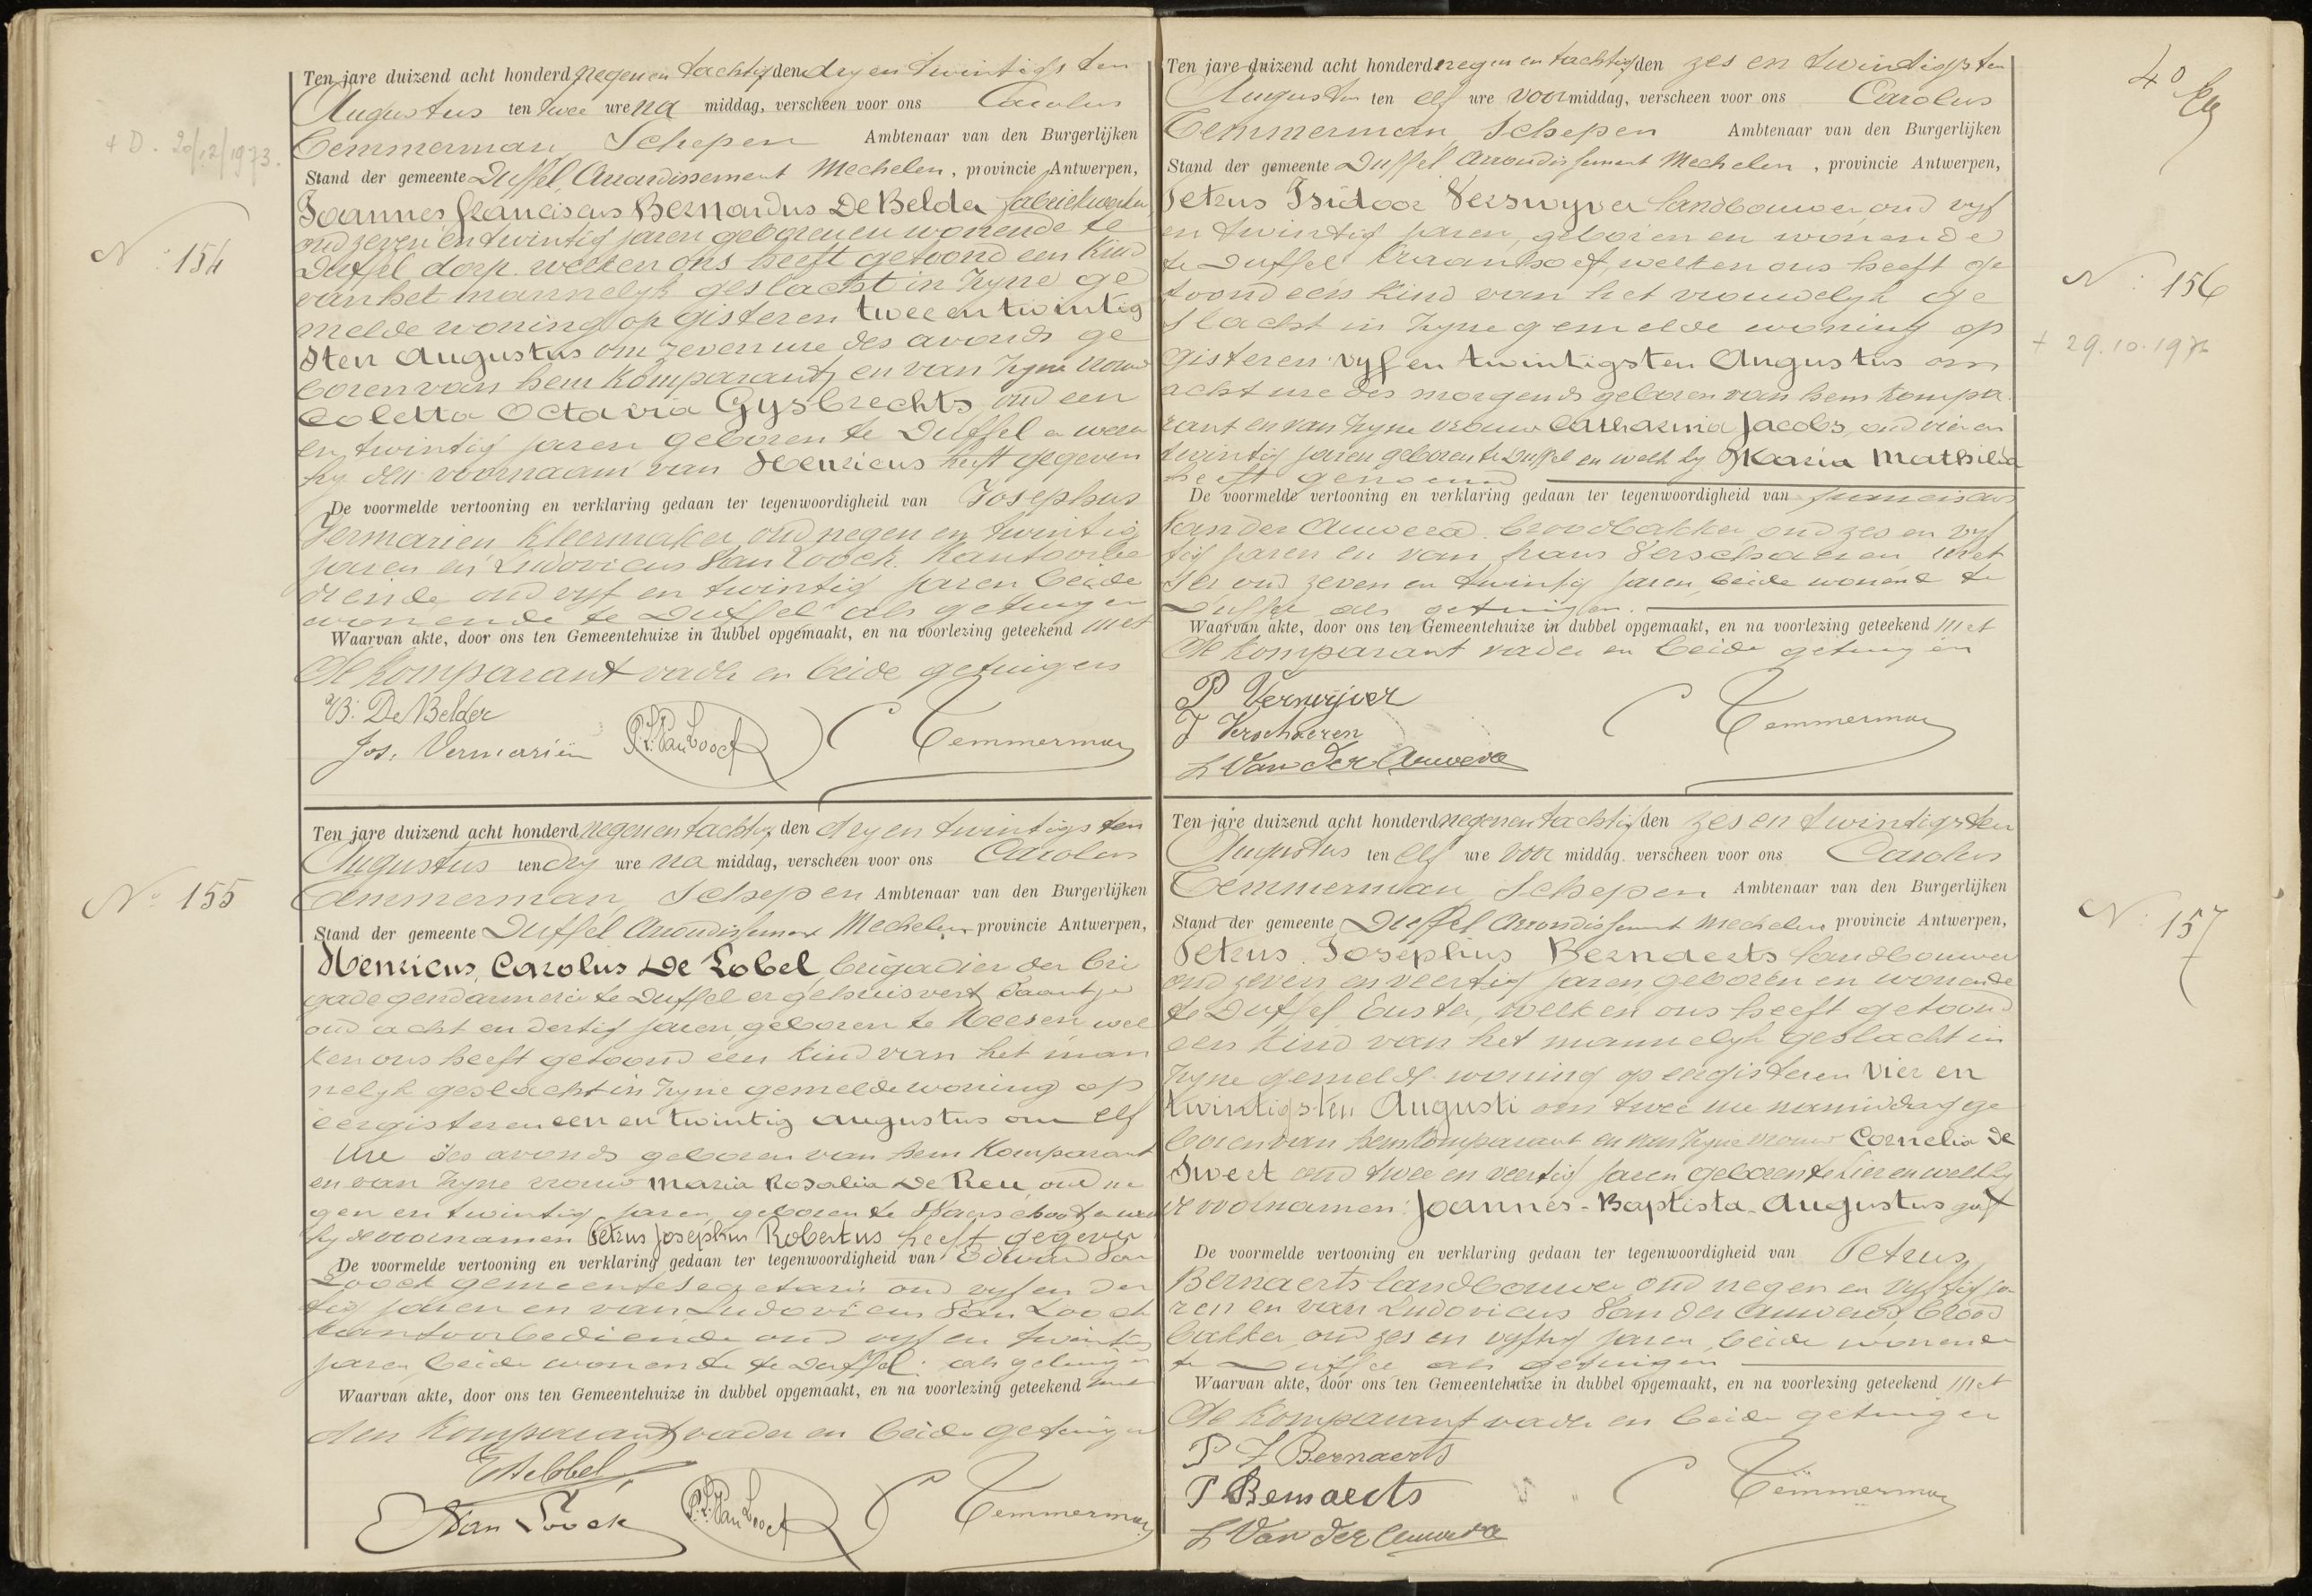 Ten jare duizend acht honderd negen en tachtig den dry en twintigsten
Augustus ten twee ure na middag, verscheen voor ons Carolus
Temmerman, Schepen Ambtenaar van den Burgerlijken
+ D. 20/12/1973.
Stand der gemeente Duffel, Arrondissement Mechelen, provincie Antwerpen,
Joannes Franciscus Bernardus De Belder fabriekwerker,
oud zeven en twintig jaren geboren en wonende te
N: 154
Duffel dorp. welken ons heeft getoond een kind
van het mannelyk geslacht in zyne ge
melde woning op gisteren twee en twintig
sten Augustus om zeven ure des avonds ge
boren van hem komparant, en van zyne vrouw
Coletta Octavia Gysbrechts, oud een
en twintig jaren geboren te Duffel en
hy den voornaam van Henricus heeft gegeven
De voormelde vertooning en verklaring gedaan ter tegenwoordigheid van Josephus
Vermarien, Kleermaker, oud negen en twintig
jaren en Ludovicus Van Loock, Kantoorbe
diende oud vyf en twintig jaren beide
wonende te Duffel als getuigen
Waarvan akte, door ons ten Gemeentehuize in dubbel opgemaakt, en na voorlezing geteekend met
de komparant vader en beide getuigen
B: De Belder
Jos. Vermariën P.L. Van Loock C Temmerman
Ten jare duizend acht honderd negen en tachtig den dry en twintigsten
Augustus ten dry ure na middag, verscheen voor ons Carolus
Temmerman, Schepen Ambtenaar van den Burgerlijken
No 155
Stand der gemeente Duffel Arrondissement Mechelen provincie Antwerpen,
Henricus, Carolus De Lobel, brigadier der bri
gade gendarmerie te Duffel er gehuisvest
oud acht en dertig jaren geboren te Meesen, wel
ken ons heeft getoond een kind van het man
nelyk geslacht in zyne gemelde woning op
eergisteren een en twintig augustus om elf
Ure des avonds geboren van hem Komparant
en van zyne vrouw Maria Rosalia De Reu, oud ne
gen en twintig jaren, geboren te Waerschoot en
hy de voornamen Petrus Josephus Robertus heeft gegeven
De voormelde vertooning en verklaring gedaan ter tegenwoordigheid van Edward Van
Loock gemeentesecretaris oud vyf en der
tig jaren en van Ludovicus Van Loock
Kantoorbediende oud vyf en twintig
jaren, beide wonende te Duffel: als getuigen
Waarvan akte, door ons ten Gemeentehuize in dubbel opgemaakt, en na voorlezing geteekend
den Komparant, vader en beide getuigen
E Van Loock P.L. Van Loock C Temmerman
Ten jare duizend acht honderd negen en tachtig den zes en twindigsten
Augustus ten elf ure voormiddag, verscheen voor ons Carolus
Temmerman, Schepen Ambtenaar van den Burgerlijken
Stand der gemeente Duffel Arrondissement Mechelen, provincie Antwerpen,
Petrus Isidoor Verswyver landbouwer, oud vyf
en twintig jaren, geboren en wonende
te Duffel welken ons heeft ge
N: 156
toond een kind van het vrouwelyk ge
slacht in zyne gemelde woning op
+ 29.10.19
gisteren vyf en twintigsten Augustus om
acht ure des morgends geboren van hem kompa
rant en van zyne vrouw Catharina Jacobs, oud vier en
twintig jaren geboren te Duffel en welk hy Maria Mathilda
heeft genoemd
De voormelde vertooning en verklaring gedaan ter tegenwoordigheid van
Van der Auwera broodbakker, oud zes en vyf
tig jaren en van Frans Verschaeren,
oud zeven en twintig jaren, beide wonende te
Duffel als getuigen.
Waarvan akte, door ons ten Gemeentehuize in dubbel opgemaakt, en na voorlezing geteekend met
de komparant vader en beide getuigen
P Verswijver
F Verschaeren C Temmerman
L Van Der Auwera
Ten jare duizend acht honderd negen en tachtig den zes en twindigsten
Augustus ten elf ure voor middag. verscheen voor ons Carolus
Temmerman, Schepen Ambtenaar van den Burgerlijken
N: 157
Stand der gemeente Duffel Arrondissement Mechelen provincie Antwerpen,
Petrus Josephus Bernaerts landbouwer
oud zeven en veertig jaren, geboren en wonende
te Duffel welken ons heeft getoond
een kind van het mannelyk geslacht in
zyne gemelde woning op eergisteren vier en
twintigsten Augusti om twee ure namiddag ge
boren van hem komparant en van zyne vrouw Cornelia De
Swert oud twee en veertig jaren, geboren te Lier en welk hy
voornamen: Joannes-Baptista-Augustus gaf
De voormelde vertooning en verklaring gedaan ter tegenwoordigheid van Petrus
Bernaerts landbouwer, oud negen en vyftig ja
ren en van Ludovicus Van der Auwera, brood
bakker, oud zes en vyftig jaren, beide wonende
te Duffel als getuigen
Waarvan akte, door ons ten Gemeentehuize in dubbel opgemaakt, en na voorlezing geteekend met
de komparant vader en beide getuigen
P J Bernaerts
P Bernaerts C Temmerman
L Van Der Auwera